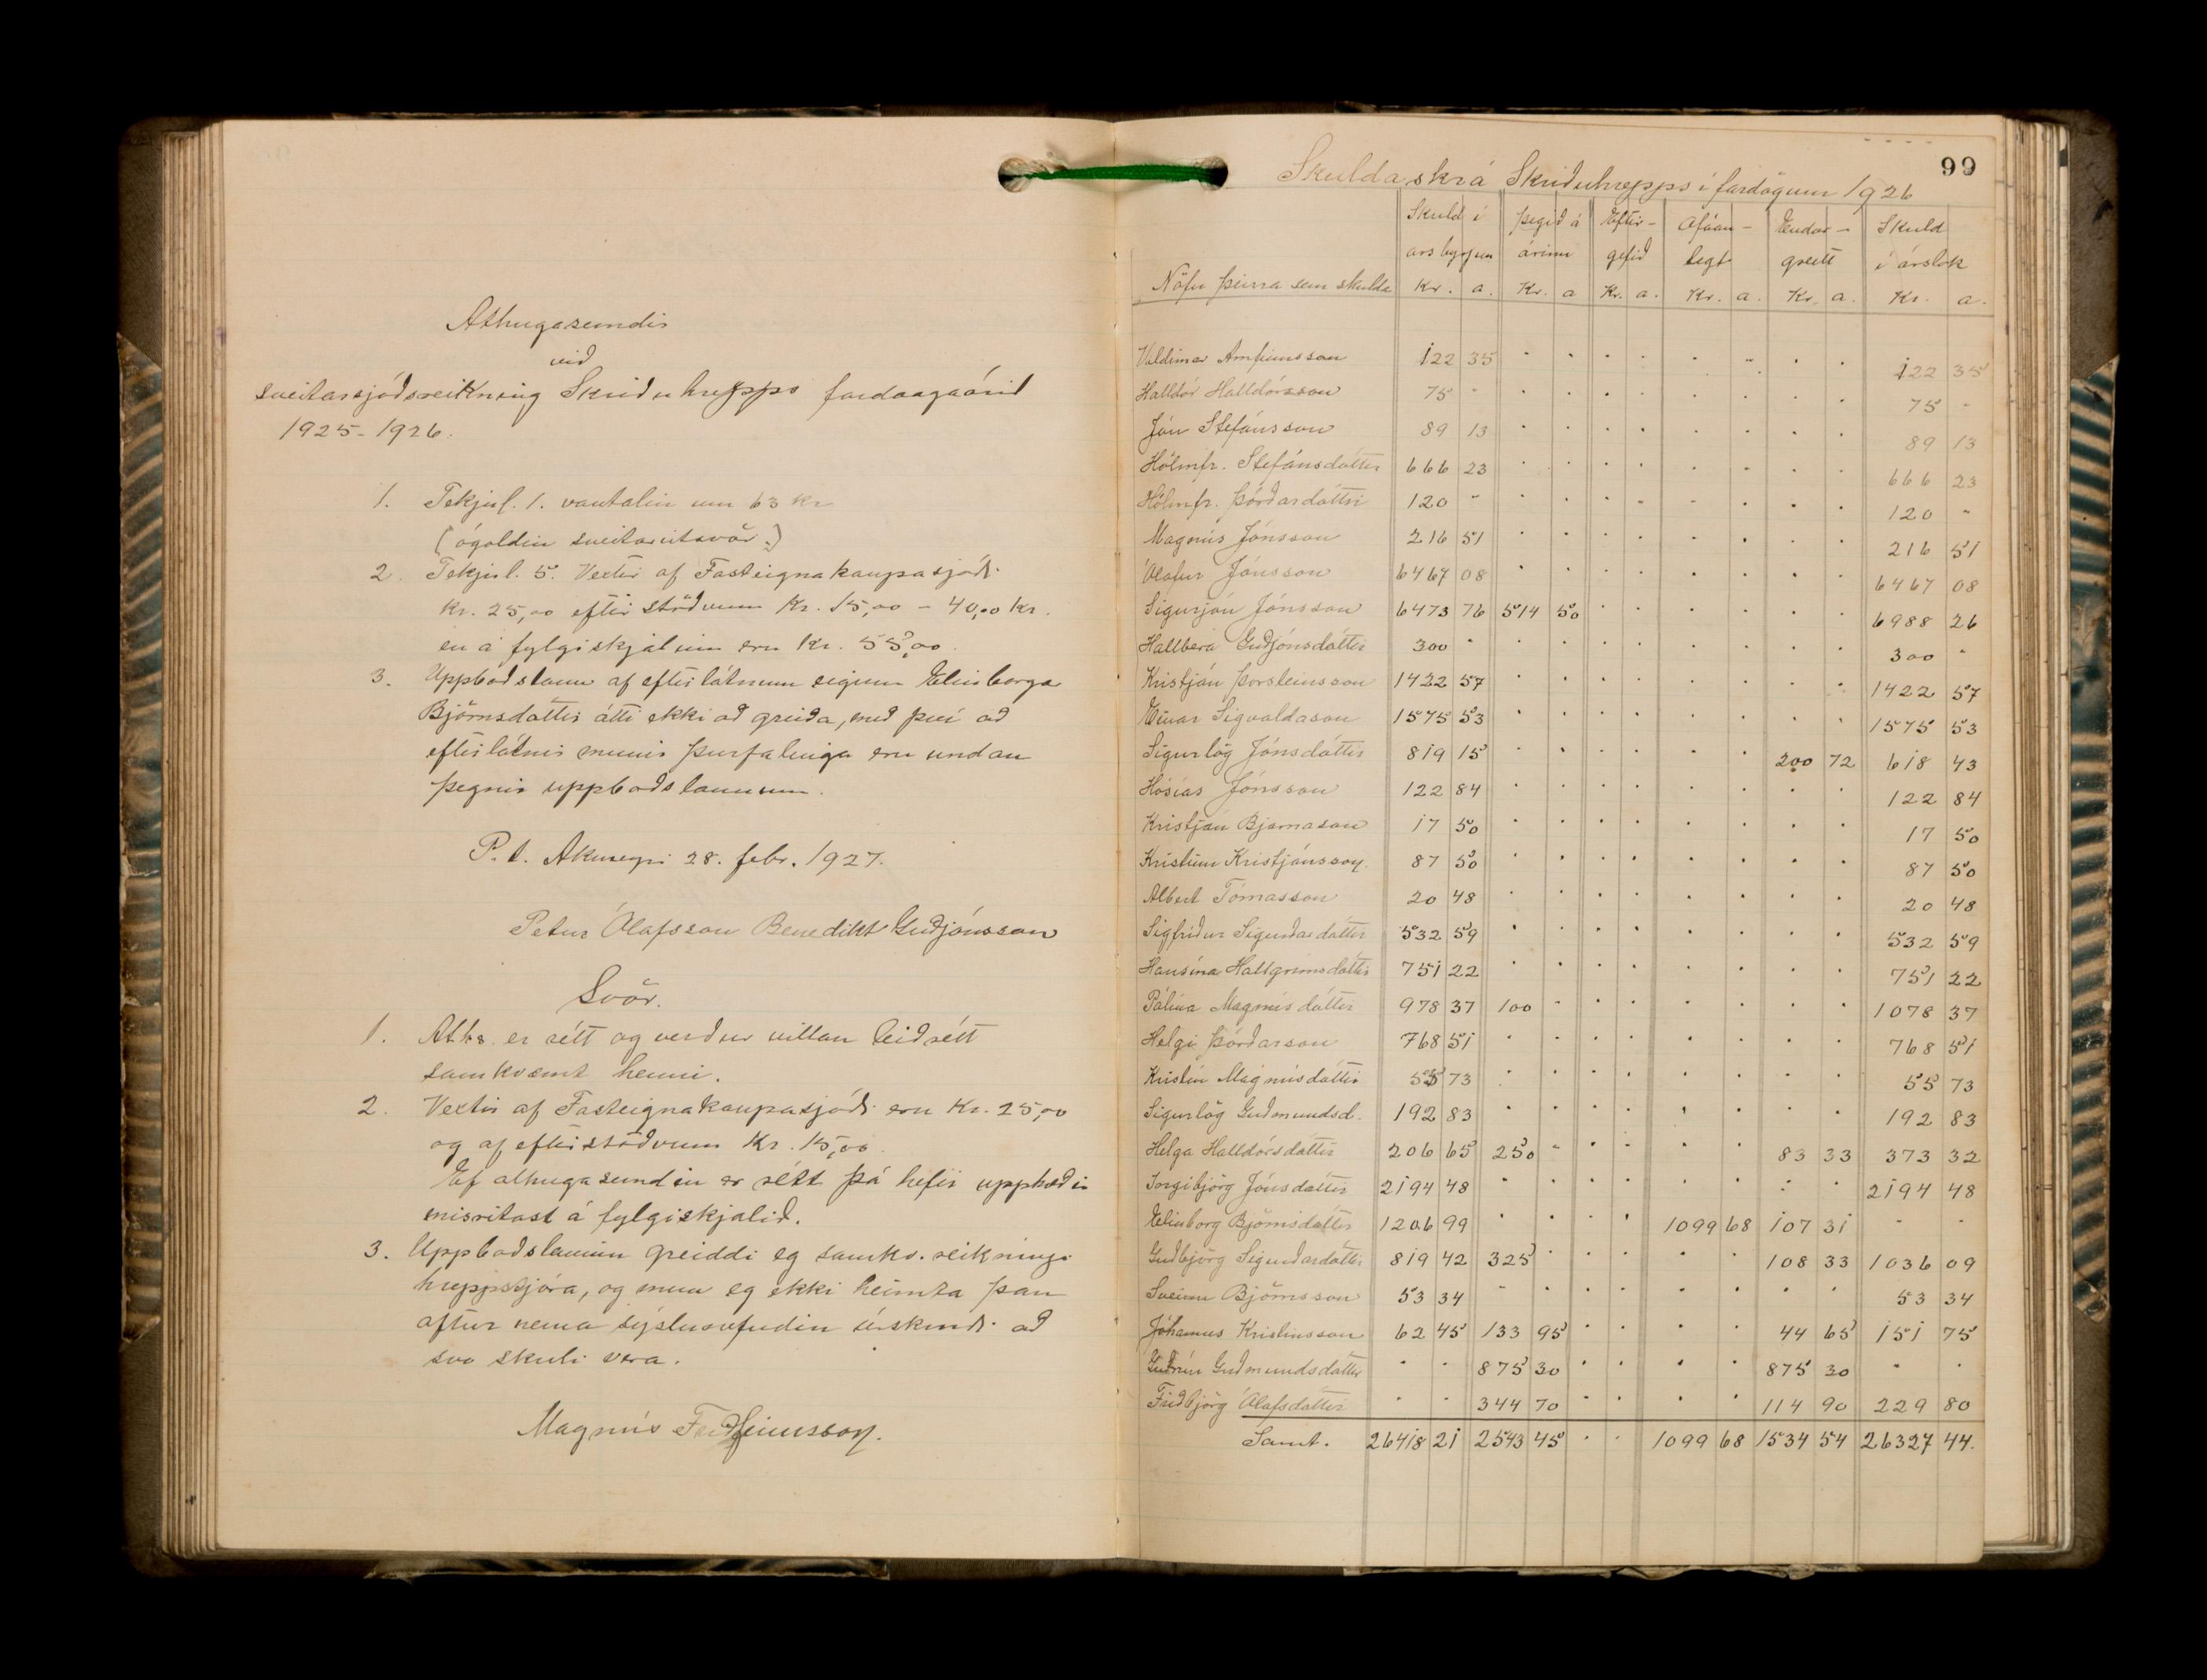 Athugasemdir
við
sveitarsjóðsreikning Skriðuhrepps fardagaárið
1925-1926.
1. Tekjul. 1. vantalin um 63 kr
(ógoldin sveitarútsvör.)
2. Tekjul. 5. Vextir af Fasteignakaupasjóði
kr. 25,00 eftirstöðvum kr. 15,00 - 40,00 kr.
en á fylgiskjalinu eru kr. 55,00.
3. Uppboðslaun af eftirlátnum eigum Elinborga
Björnsdóttir átti ekki að greiða, með því að
eftirlátnir munir þurfalinga eru undan
þegnir uppboðslaunum.
P.t. Akureyri 28. febr. 1927.
Petur Ólafsson Benedikt Guðjónsson
Svör.
1. Aths. er rétt og verður villan leiðrétt
samkvæmt henni.
2. Vextir af Fasteignakaupasjóði eru Kr. 25,00
og af eftirstöðvum Kr. 15,00
Ef athugasemdin er rétt þá hefir upphæðin
misritast á fylgiskjalið.
3. Uppboðslaunin greiddi eg samkv. reikningi
hreppstjóra, og mun eg ekki heimta þau
aftur nema sýslunefndin úrskurði að
svo skuli vera.
Magnús Friðfinnsson.
99
Skuldaskrá Skriðuhrepps í fardögum 1926
Nöfn þeirra sem skulda | Skuld í ársbyrjun Kr. a. | Þegið á árinu Kr. a | Eftirgefið Kr. a. | Afáanlegt Kr. a. | Endurgreitt Kr. a. | Skuld í árslok Kr. a.
Valdimar Arnfinnsson 122 35 · · · · · · · · 122 35
Halldór Halldórsson 75 - · · · · · · · · 75 -
Jón Stefánsson 89 13 · · · · · · · · 89 13
Hólmfr. Stefánsdóttir 666 23 · · · · · · · · 666 23
Hólmfr. Þórðardóttir 120 - · · · · · · · · 120 -
Magnús Jónsson 216 51 · · · · · · · · 216 51
Ólafur Jónsson 6467 08 · · · · · · · · 6467 08
Sigurjón Jónsson 6473 76 514 50 · · · · · · 6988 26
Hallbera Guðjónsdóttir 300 - · · · · · · · · 300 -
Kristján Þorsteinsson 1422 57 · · · · · · · · 1422 57
Einar Sigvaldason 1575 53 · · · · · · · · 1575 53
Sigurlög Jónsdóttir 819 15 · · · · · · 200 72 618 43
Hósías Jónsson 122 84 · · · · · · · · 122 84
Kristján Bjarnason 17 50 · · · · · · · · 17 50
Kristinn Kristjánsson. 87 50 · · · · · · · · 87 50
Albert Tómasson 20 48 · · · · · · · · 20 48
Sigfríður Sigurðardóttir 532 59 · · · · · · · · 532 59
Hansína Hallgrímsdóttir 751 22 · · · · · · · · 751 22
Pálína Magnúsdóttir 978 37 100 - · · · · · · 1078 37
Helgi Þórðarson 768 51 · · · · · · · · 768 51
Kristín Magnúsdóttir 55 73 · · · · · · · · 55 73
Sigurlög Guðmundsd. 192 83 · · · · · · · · 192 83
Helga Halldórsdóttir 206 65 250 - · · · · 83 33 373 32
Ingibjörg Jónsdóttir 2194 48 · · · · · · · · 2194 48
Elinborg Björnsdóttir 1206 99 · · · · 1099 68 107 31 - -
Guðbjörg Sigurðardóttir 819 42 325 · · · · · 108 33 1036 09
Sveinn Björnsson 53 34 - · · · · · · · 53 34
Jóhannes Kristinsson 62 45 133 95 · · · · 44 65 151 75
Guðrún Guðmundsdóttir · · 875 30 · · · · 875 30 · ·
Friðbjörg Ólafsdóttir · · 344 70 · · · · 114 90 229 80
Samt. 26418 21 2543 45 · · 1099 68 1534 54 26327 44.